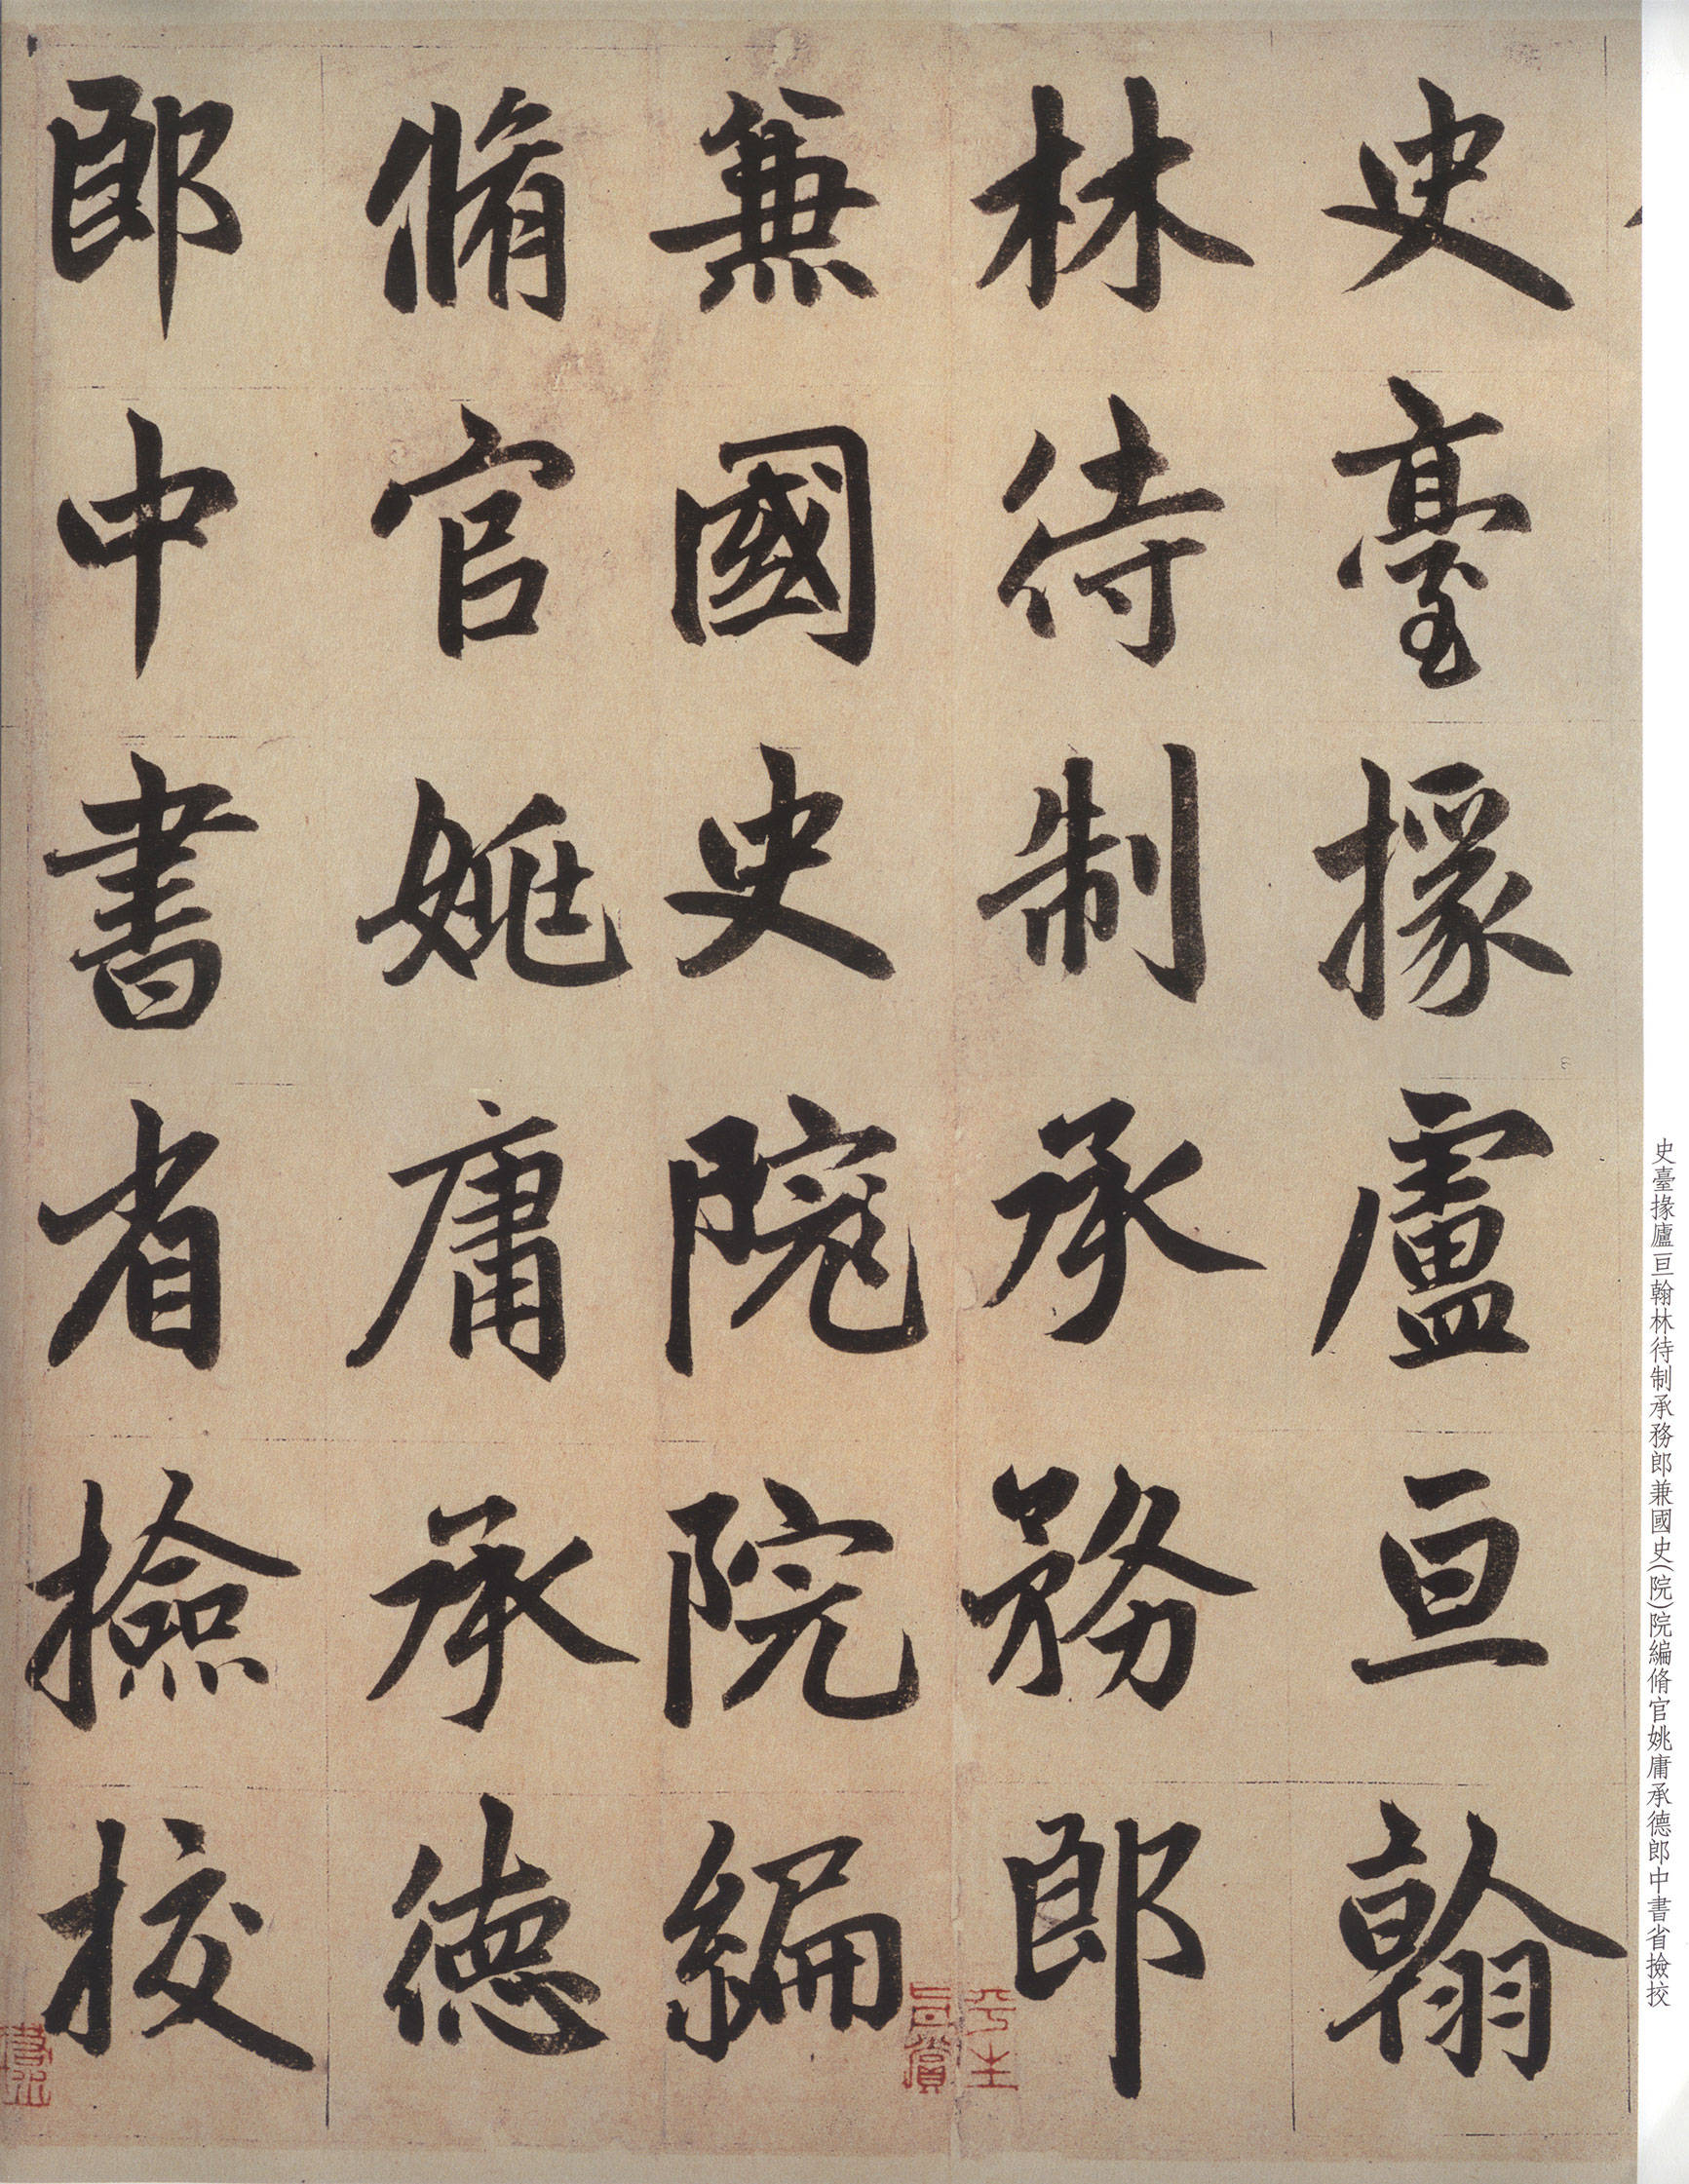 史臺掾盧亘翰
林待制承務郎
兼國史院院編
脩官姚庸承德
郎中書省撿挍
史臺掾廬亘翰林待制承務郎兼國史(院)院編脩官姚庸承德郎中書省撿挍